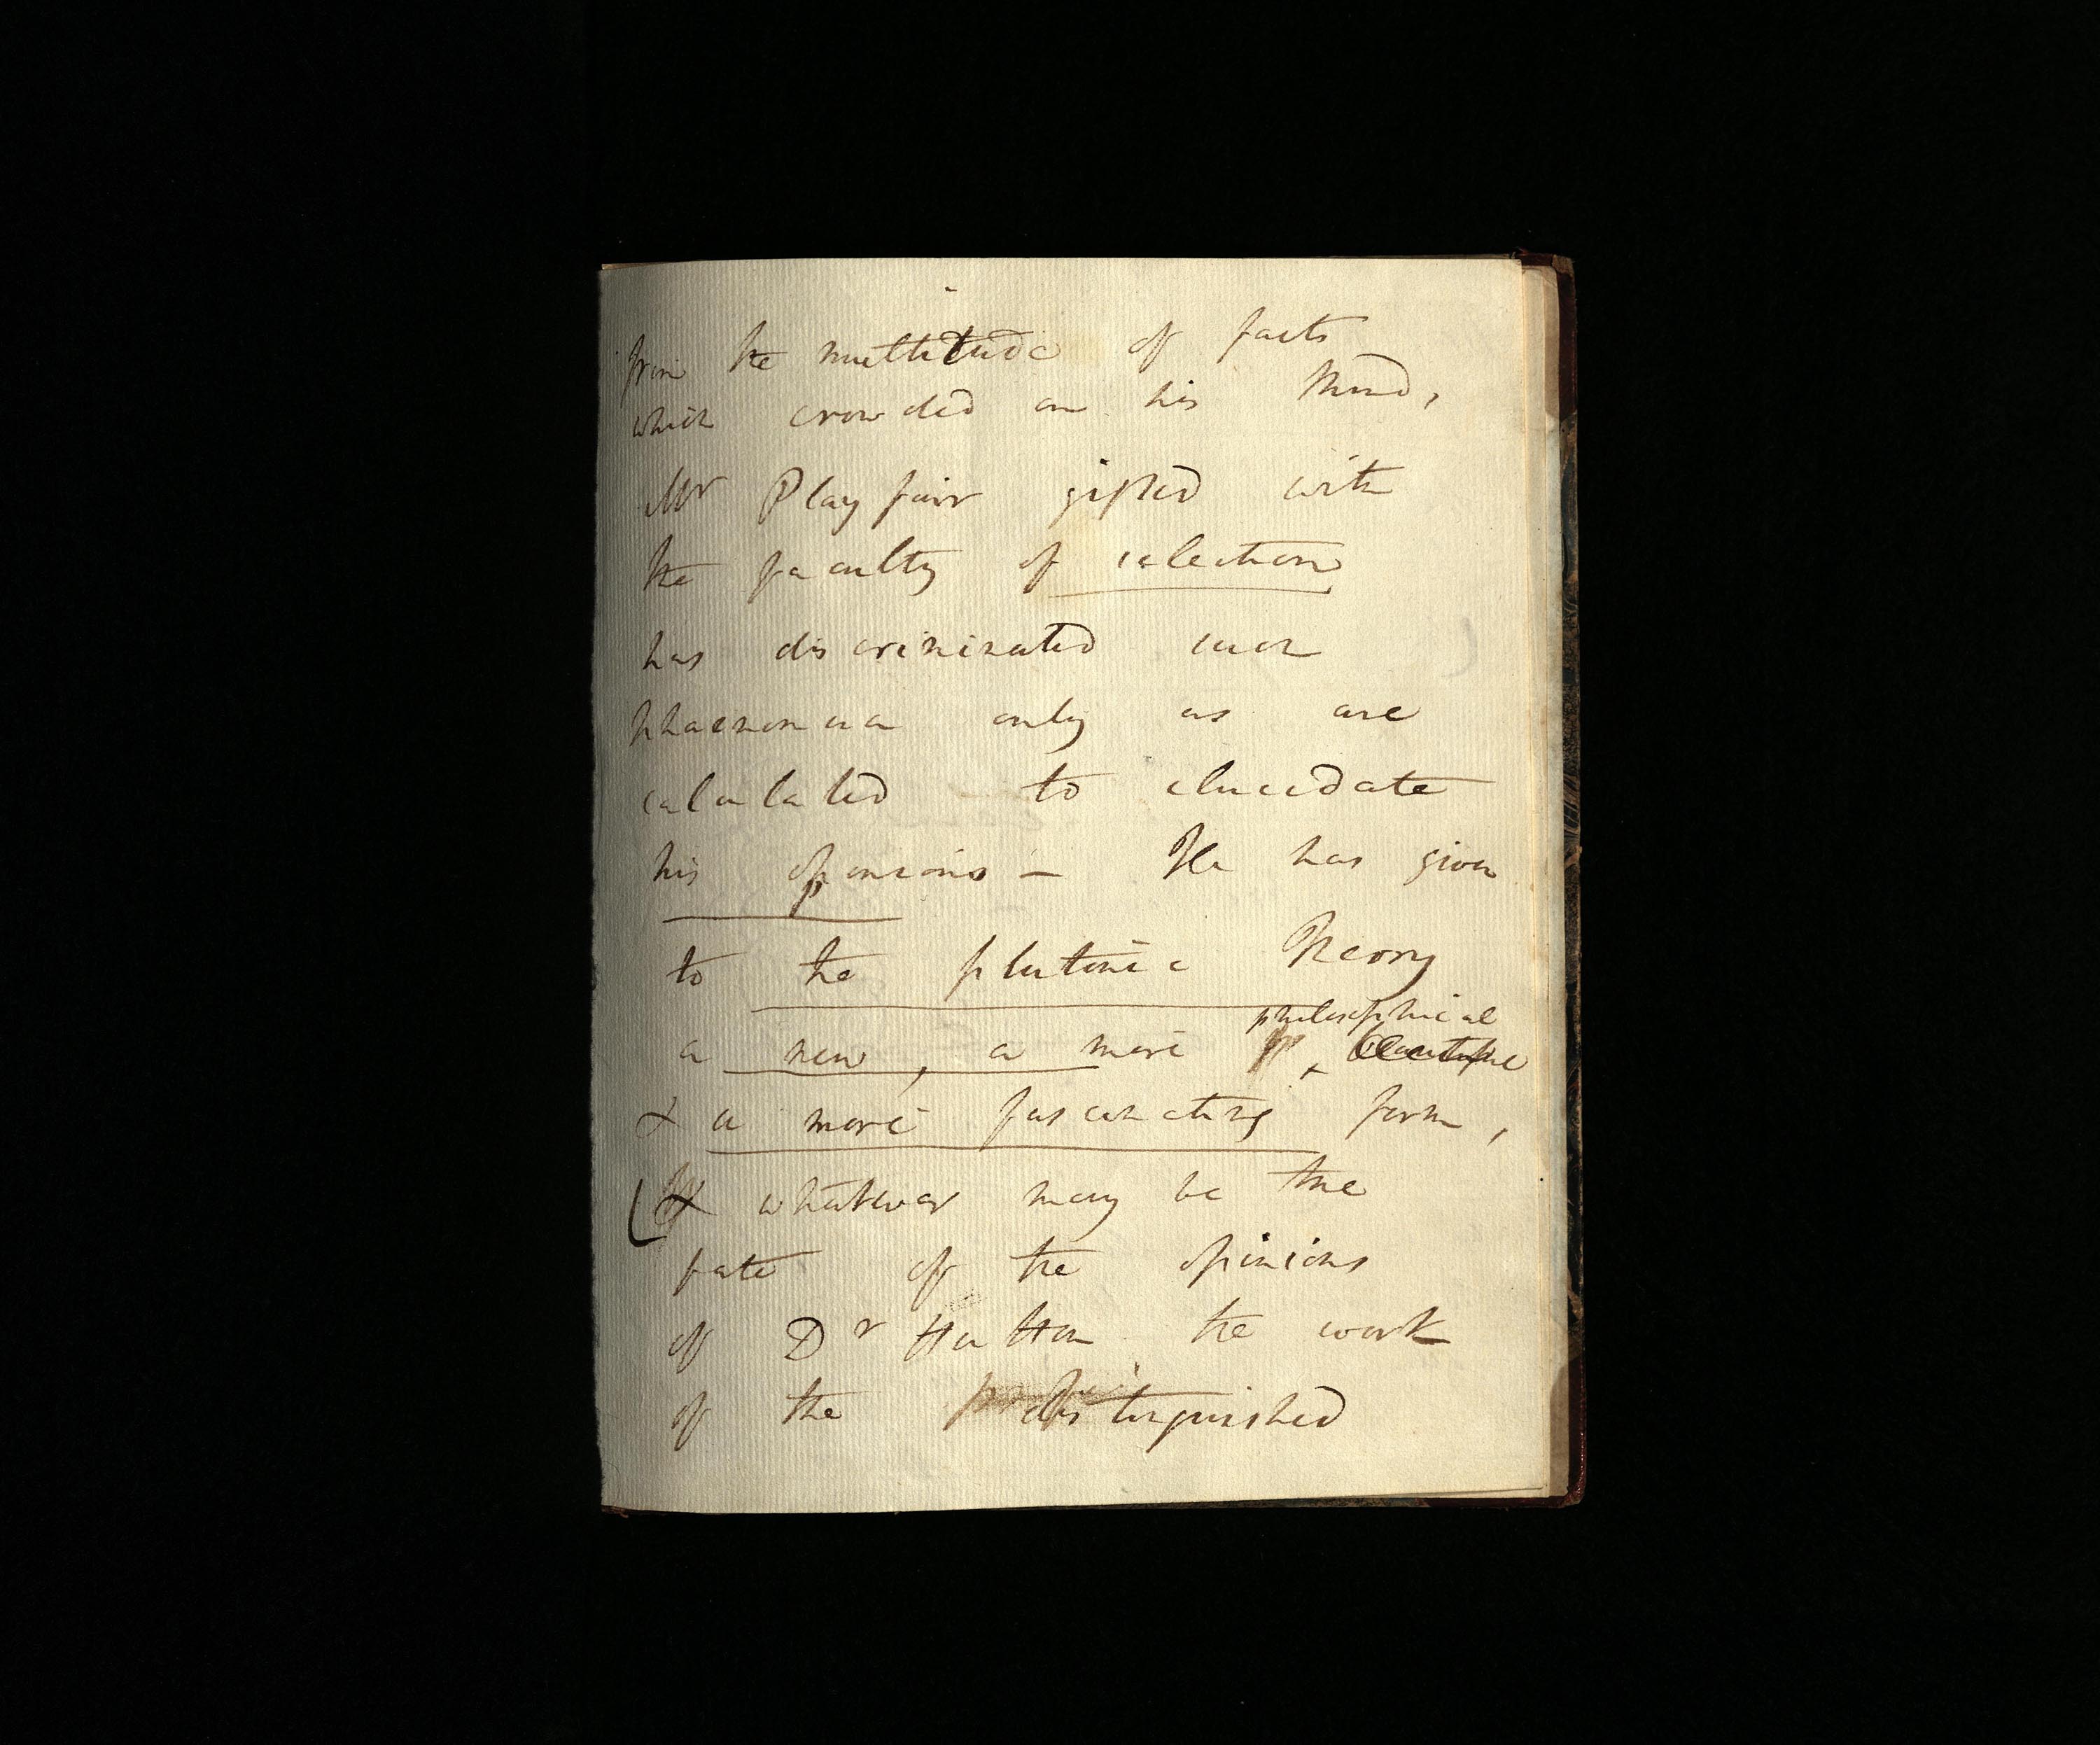 from the multitude of facts
which crowded on his Mind,
Mr Playfair gifted with
the faculty of selection
has discriminated such
phaenomena only as are
calculated to elucidate
his opinions - He has given
to the plutonic Theory
philosophical
a new, a more beautiful
& a more fascinating form,
& whatever may be the
fate of the opinions
of Dr Hutton the work
of the distinguished